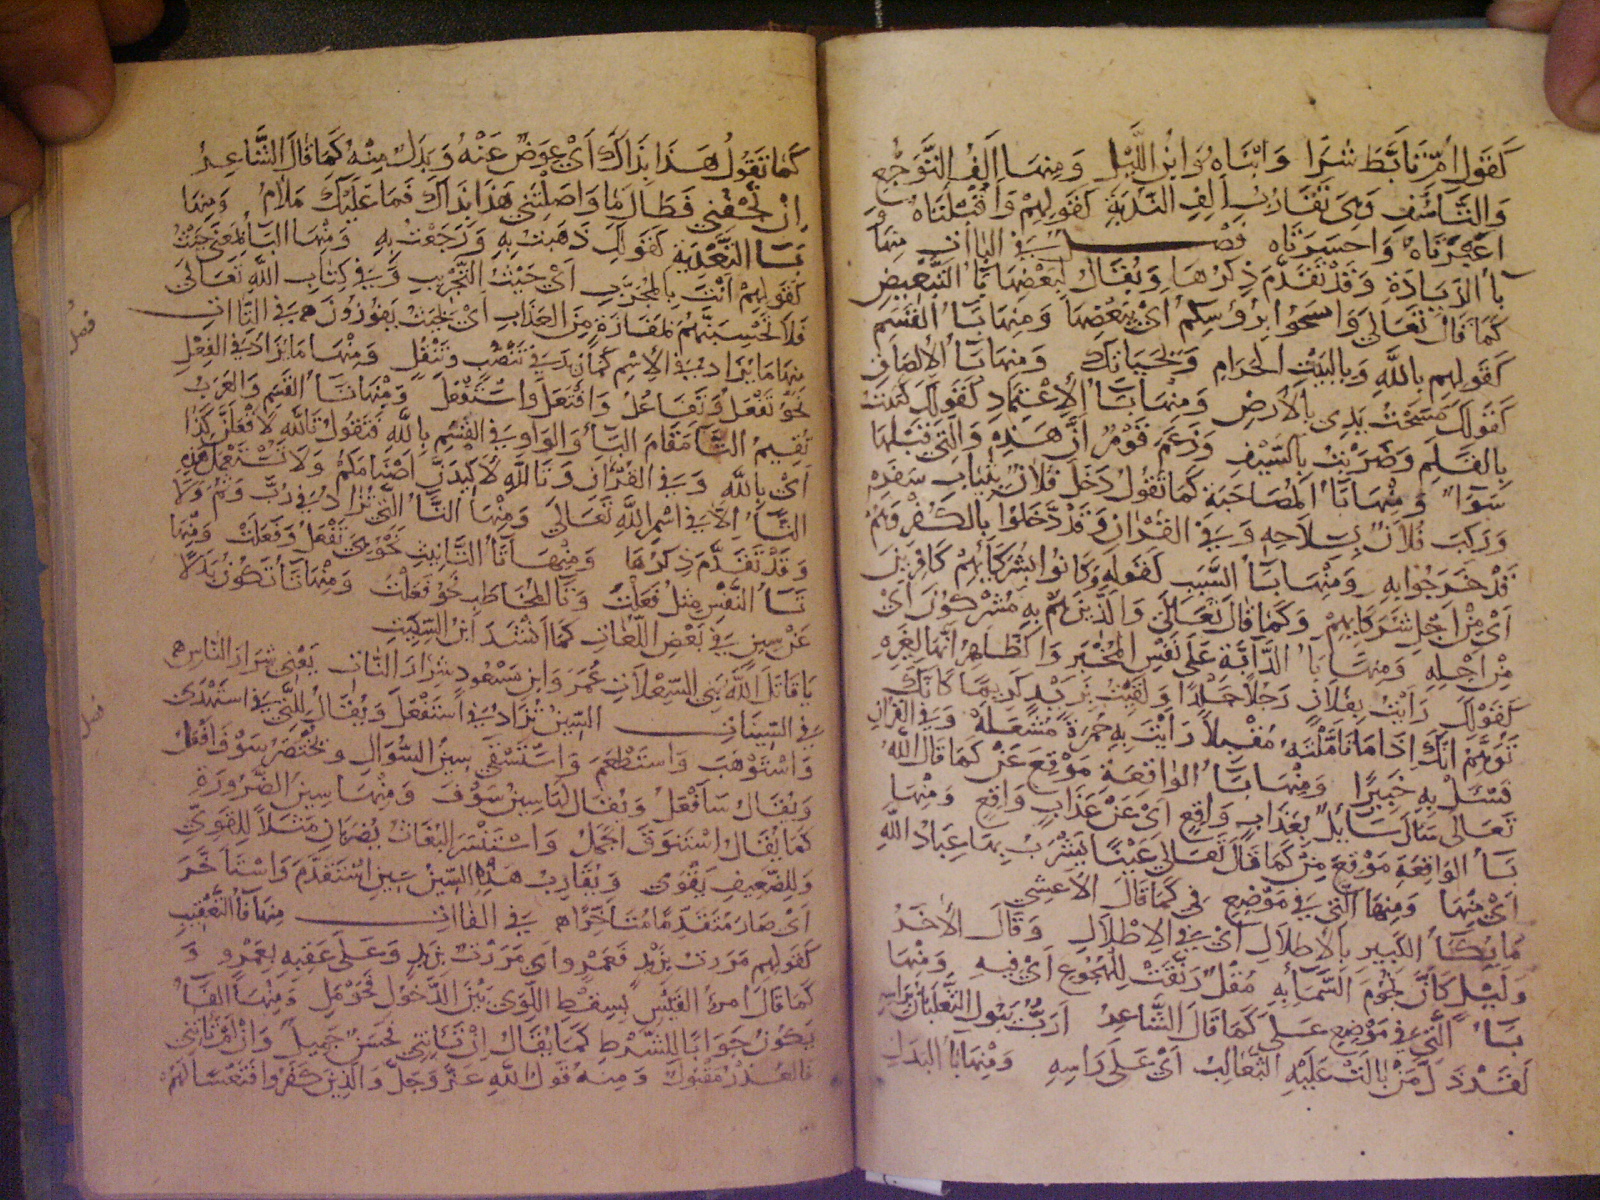 كقول أم تأبط شرا وابناه وابن الليل ومنها ألف التوجع
والتأسف وهي تقارب ألف الندبة كقولهم واقلباه
واحسرتاه فصل في الباآت منها
باء الزيادة وقد تقدم ذكرها ويقال لبعضها باء التبعيض
كما قال تعالى وامسحوا برؤسكم أي بعضها ومنها باء القسم
كقولهم بالله وبالبيت الحرام وبحياتك ومنها باء الالصاق
كقولك مسحت يدي بالأرض ومنها باء الاعتماد كقولك كتبت
بالقلم وضربت بالسيف وزعم قوم أن هذه والتي قبلها
سواء ومنها باء المصاحبة كما تقول دخل فلان بثياب سفره
وركب فلان بسلاحه وفي القرآن وقد دخلوا بالكفر وهم
قد خرجوا به ومنها باء السبب كقوله وكانوا بشركائهم كافرين
أي من أجل شركائهم وكما قال تعالى والذين هم به مشركون أي
من أجله ومنها باء الدالة على نفس المخبر والظاهر أنها لغيره
كقولك رأيت بفلان رجلا جلدا ولقيت بزيد كريما كأنك
توهم أنك إذا ما تأملته مقبلا رأيت به جمرة مشتعلة وفي القرآن
فسئل به خبيرا ومنها باء الواقعة موقع عن كما قال الله
تعالى سأل سائل بعذاب واقع أي عن عذاب واقع ومنها
باء الواقعة موقع من كما قال تعالى عينا يشرب بها عباد الله
أي منها ومنها التي في موضع في كما قال الأعشى
ما بكاء الكبير بالأطلال أي في الأطلال وقال الآخر
وليل كأن نجوم السماء به مقل رنقت للهجوع أي فيه ومنها
باء التي في موضع على كما قال الشاعر أرب يبول الثعلبان براسه
لقد ذل من بالت عليه الثعالب أي على راسه ومنها باء البدل
كما تقول هذا بذاك أي عوض عنه وبدل منه كما قال الشاعر
إن تجفني فطال ما واصلتني هذا بذاك فما عليك ملام ومنها
باء التعدية كقولك ذهبت به ورجعت به ومنها الباء بمعنى حيث
كقولهم أنت بالمجرب أي حيث التجريب وفي كتاب الله تعالى
فلا تحسبنهم بمفازة من العذاب أي بحيث يفوزون في التاآت
فصل
منها ما يزاد في الاسم كما زيد في تنضب وتتفل ومنها ما يزاد في الفعل
نحو تفعل وتفاعل وافتعل واستفعل ومنها تاء القسم والعرب
تقيم التاء مقام الباء والواو في القسم بالله فتقول تالله لأفعلن كذا
أي بالله وفي القرآن وتالله لأكيدن أصنامكم ولا تستعمل هذه
التاء إلا في اسم الله تعالى ومنها التاء التي تزاد في رب وثم ولا
وقد تقدم ذكرها ومنها تاء التأنيث نحو هي تفعل وفعلت ومنها
تاء النفس مثل فعلت وتاء المخاطب نحو فعلت ومنها تاء تكون بدلا
عن سين في بعض اللغات كما أنشد ابن السكيت
يا قاتل الله بني السعلات عمر وابن مسعود شرار النات يعني شرار الناس
فصل
في السينات السين تزاد في استفعل ويقال للتي في استهدى
واستوهب واستطعم واستسقى سين السؤال وتختصر سوف أفعل
ويقال سأفعل ويقال لها سين سوف ومنها سين الضرورة
كما يقال استنوق الجمل واستنسر البغاث يضربان مثلا للقوي
وللضعيف يقوى ويقارب هذه السين سين استقدم واستأخر
أي صار متقدما متأخرا في الفاآت منها فاء التعقيب
كقولهم مررت بزيد فعمرو أي مررت بزيد وعلى عقبه بعمرو و
كما قال امرؤ القيس بسقط اللوى بين الدخول فحومل ومنها الفاء
يكون جوابا للشرط كما يقال إن تأتني فحسن جميل وإن لم تأتني
فالعذر مقبول ومنه قول الله عز وجل والذين كفروا فتعسا لهم